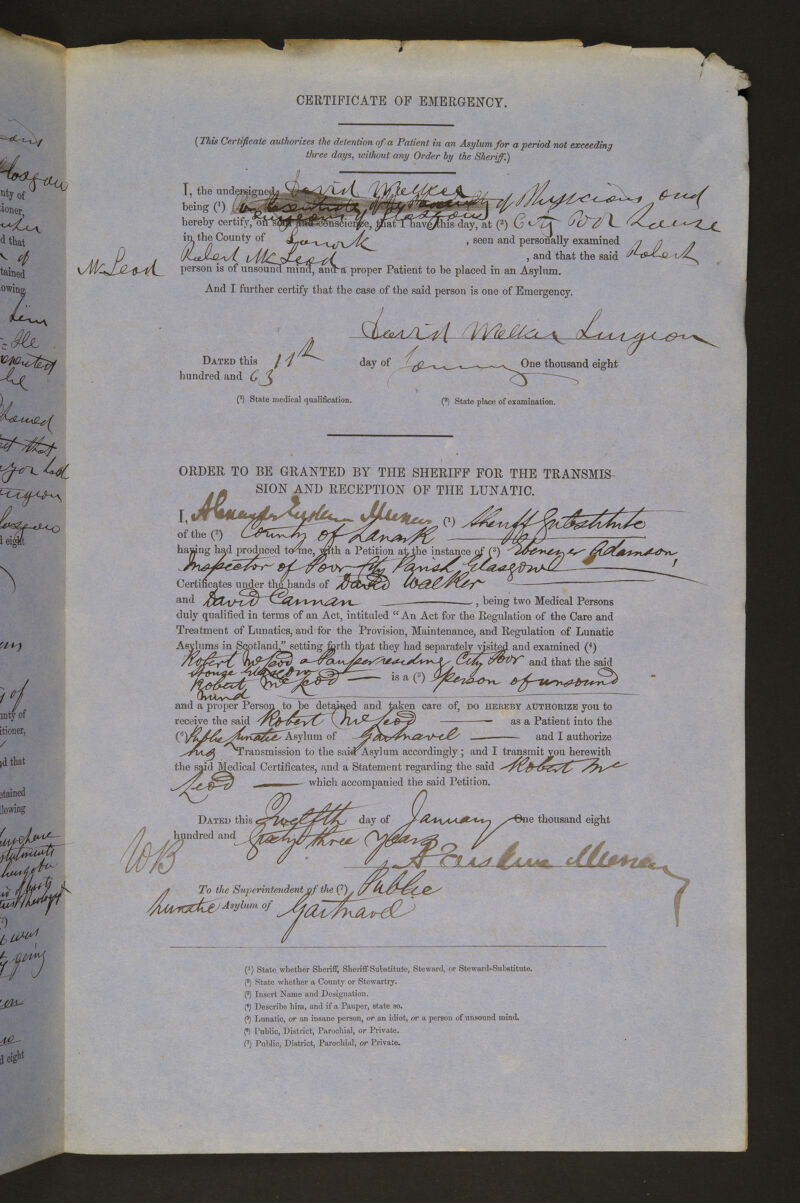 CERTIFICATE OF EMERGENCY.
(This Certificate authorizes the detention of a Patient in an Asylum for a period not exceeding
three days, without any Order by the Sheriff.)
I, the undersigned, David Walker
being (1) of Physicians and
Surgeons of Glasgow
hereby certify, on soul and conscience, that I have this day, at (2) City Poor House
in the County of Lanark, seen and personally examined
Robert McLeod, and that the said Robert
McLeod person is of unsound mind, and a proper Patient to be placed in an Asylum.
And I further certify that the case of the said person is one of Emergency.
David Walker Surgeon
DATED this 11th day of January One thousand eight
hundred and 63
(1) State medical qualification. (2) State place of examination.
ORDER TO BE GRANTED BY THE SHERIFF FOR THE TRANSMIS-
SION AND RECEPTION OF THE LUNATIC.
I, Alexander Erskine Murray (1) Sheriff Substitute
of the (2) County of Lanark
having had produced to me, with a Petition at the instance of (3) Ebenezer Adamson,
Inspector of Poor City Parish, Glasgow
Certificates under the hands of David Walker
and David Cannan, being two Medical Persons
duly qualified in terms of an Act, intituled "An Act for the Regulation of the Care and
Treatment of Lunatics, and for the Provision, Maintenance, and Regulation of Lunatic
Asylums in Scotland," setting forth that they had separately visited and examined (4)
Robert McLeod a Pauper residing City Poor and that the said
House Glasgow
Robert McLeod is a (5) person of unsound
mind
and a proper Person to be detained and taken care of, DO HEREBY AUTHORIZE you to
receive the said Robert McLeod as a Patient into the
(6) Public Lunatic Asylum of Gartnavel and I authorize
his Transmission to the said Asylum accordingly; and I transmit you herewith
the said Medical Certificates, and a Statement regarding the said Robert Mc
Leod which accompanied the said Petition.
DATED this Twelfth day of January One thousand eight
hundred and Sixty three years
WB
A Erskine Murray
To the Superintendent of the (7) Public
Lunatic Asylum of Gartnavel
(1) State whether Sheriff, Sheriff-Substitute, Steward, or Steward-Substitute.
(2) State whether a County or Stewartry.
(3) Insert Name and Designation.
(4) Describe him, and if a Pauper, state so.
(5) Lunatic, or an insane person, or an idiot, or a person of unsound mind.
(6) Public, District, Parochial, or Private.
(7) Public, District, Parochial, or Private.